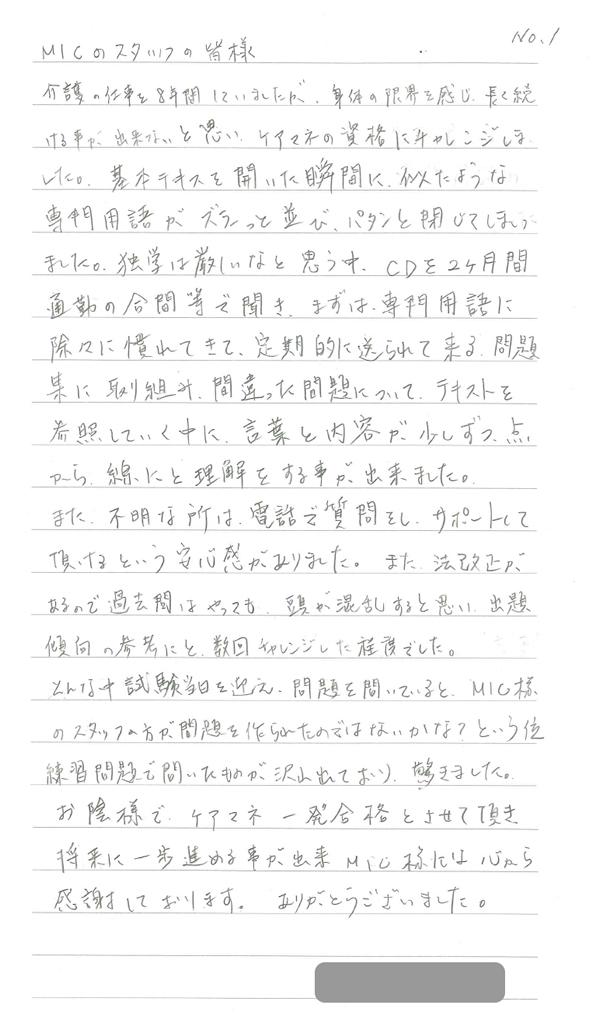 No.1
MICのスタッフの皆様
介護の仕事を8年間していましたが、身体の限界を感じ、長く続
ける事が、出来ないと思い、ケアマネの資格にチャレンジしま
した。基本テキスを開いた瞬間に、似たような
専門用語がズラーっと並び、パタンと閉じてしまい
ました。独学は厳しいなと思う中、CDを2ヶ月間
通勤の合間等で聞き、まずは、専門用語に
除々に慣れてきて、定期的に送られて来る、問題
集に取り組み、間違った問題について、テキストを
参照していく中に、言葉と内容が少しずつ、点
から、線にと理解をする事が、出来ました。
また、不明な所は、電話で質問をし、サポートして
頂けるという安心感がありました。また、法改正が
あるので過去問はやっても、頭が混乱すると思い、出題
傾向の参考にと、数回チャレンジした程度でした。
そんな中試験当日を迎え、問題を開いていると、MIC様
のスタッフの方が問題を作られたのではないかな?という位
練習問題で聞いたものが沢山出ており、驚きました。
お陰様で、ケアマネ一発合格とさせて頂き
将来に一歩進める事が出来MIC様には心から
感謝しております。ありがとうございました。